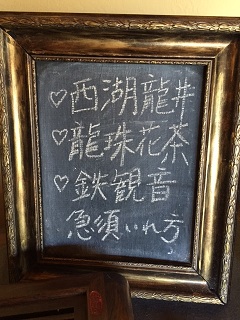 ♡西湖龍井
♡龍珠花茶
♡鉄観音
急須いれ方